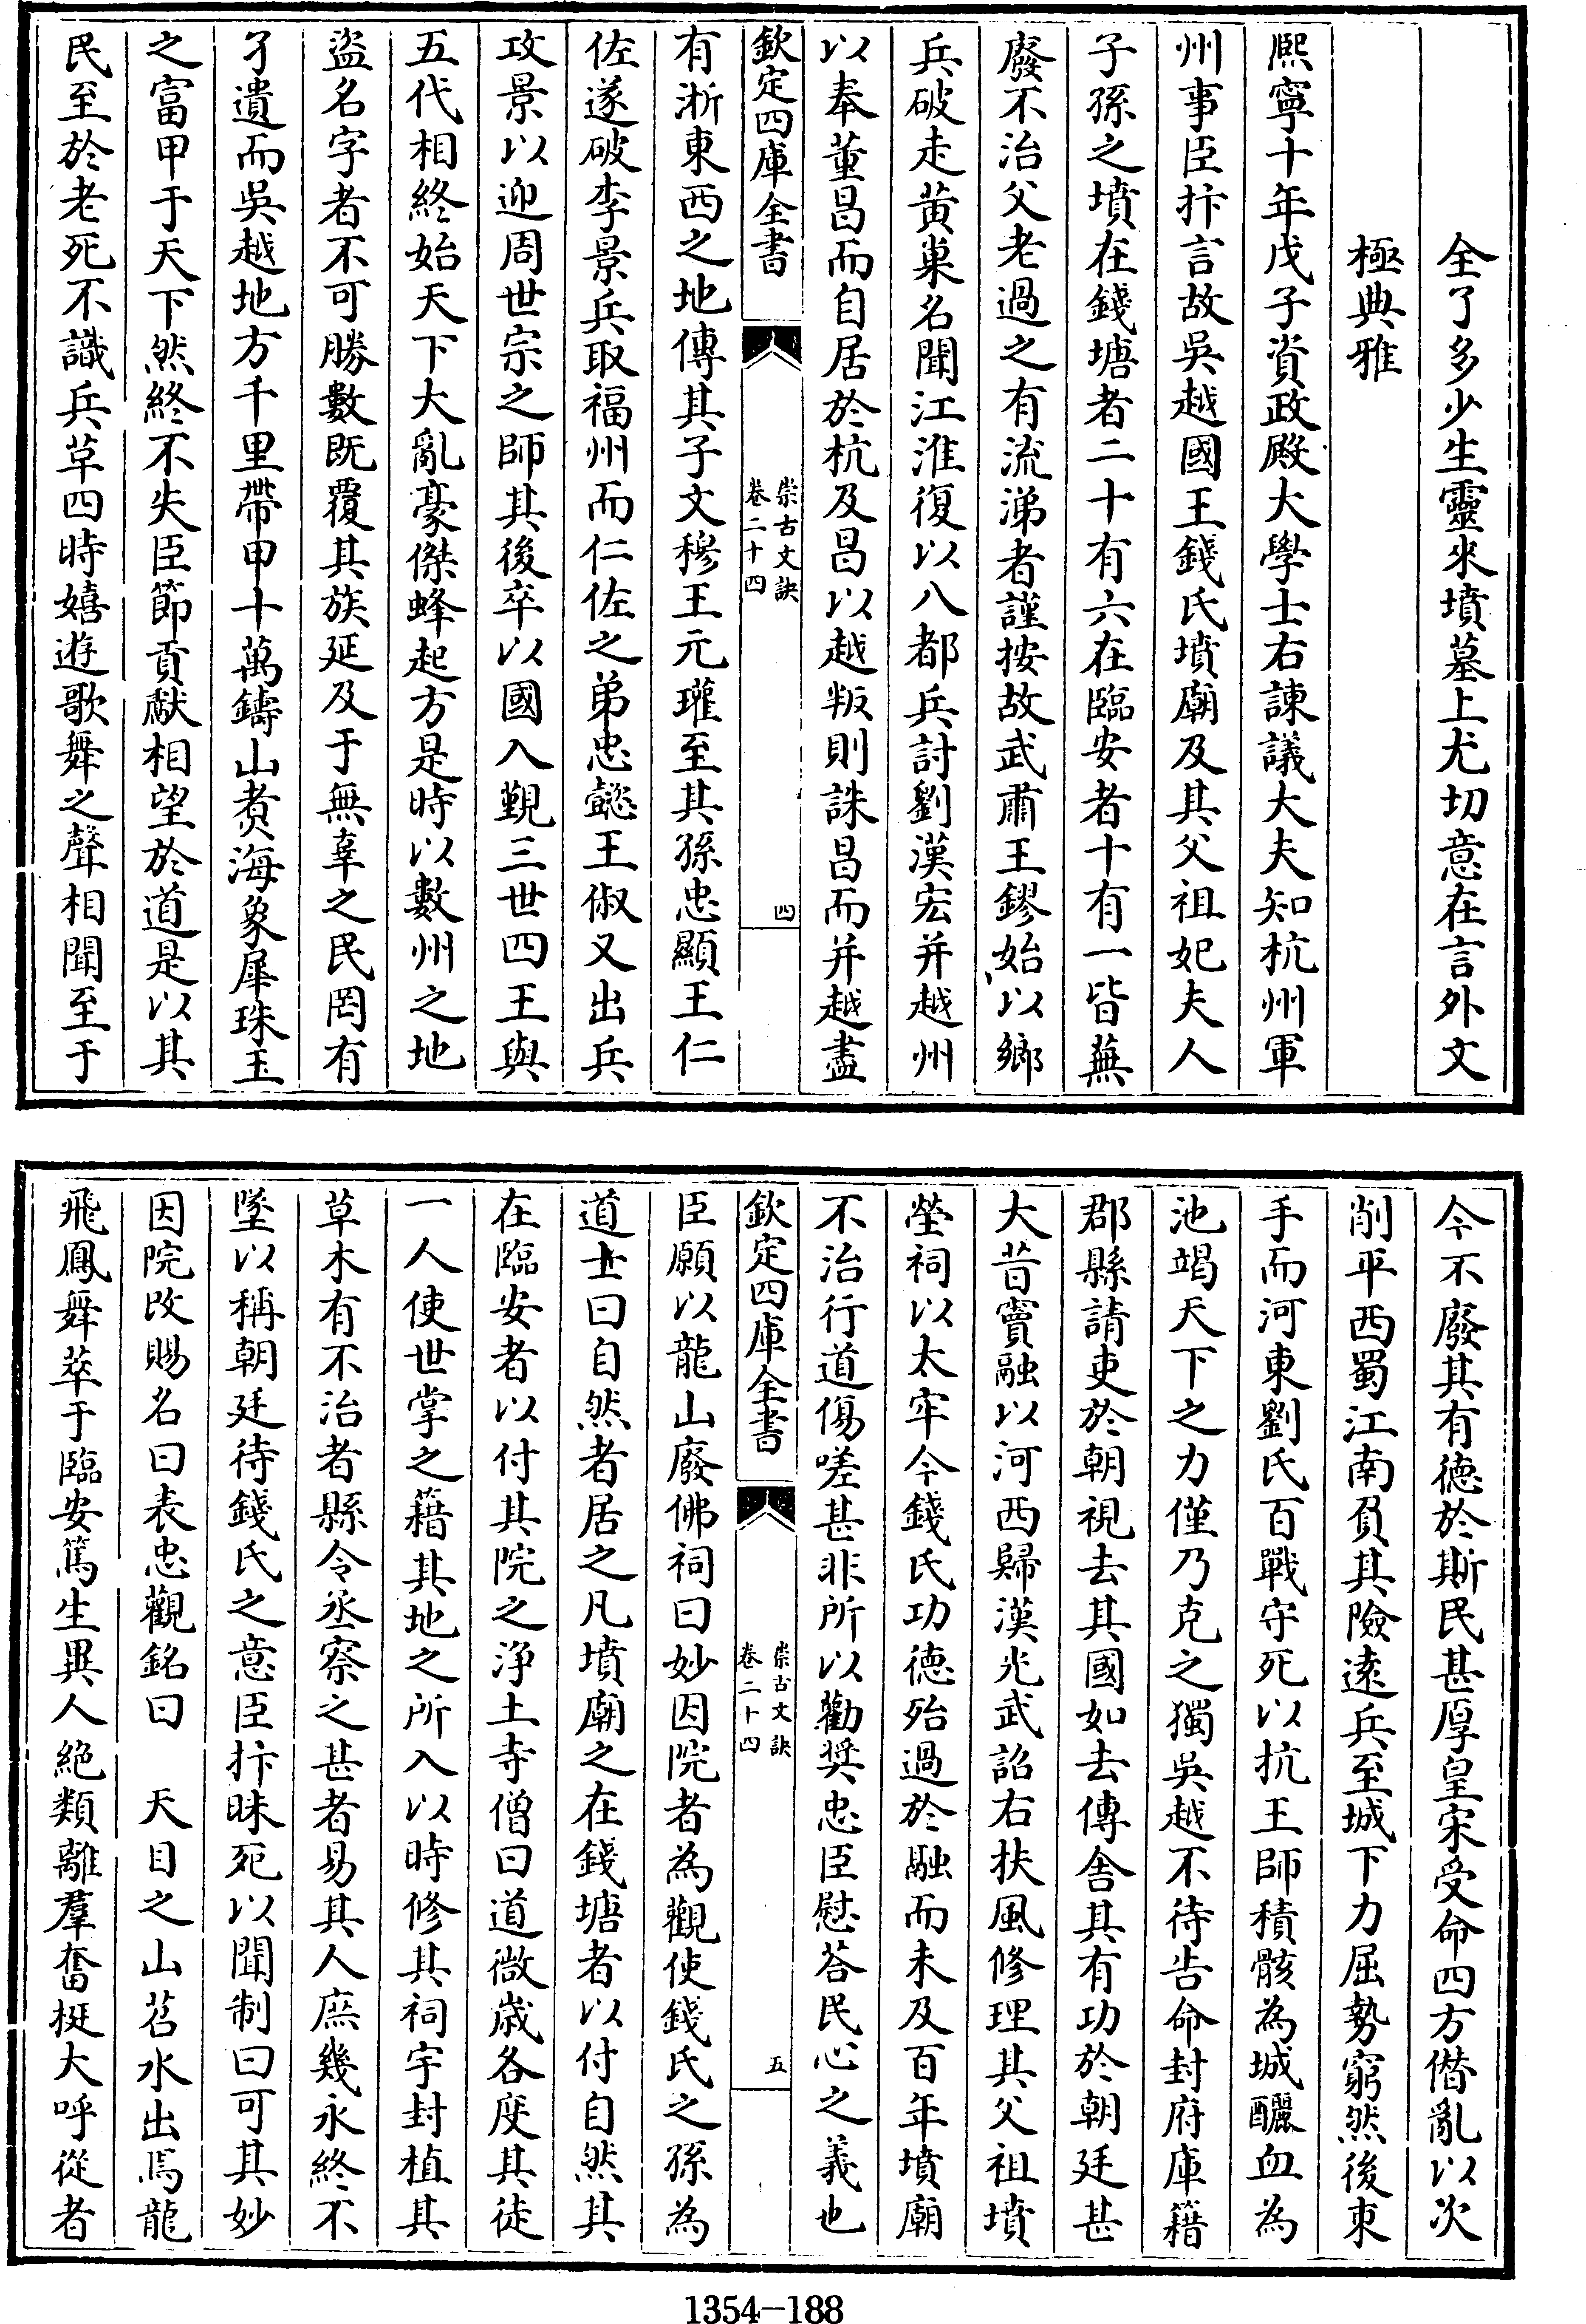 全了多少生靈來墳墓上尤切意在言外文
極典雅
熈寧十年戊子資政殿大學士右諫議大夫知杭州軍
州事臣抃言故吳越國王錢氏墳廟及其父祖妃夫人
子孫之墳在錢塘者二十有六在臨安者十有一皆蕪
廢不治父老過之有流涕者謹按故武肅王鏐始以鄉
兵破走黃巢名聞江淮復以八都兵討劉漢宏并越州
以奉董昌而自居於杭及昌以越叛則誅昌而并越盡
欽定四庫全書
崇古文訣
卷二十四
四
有浙東西之地傳其子文穆王元瓘至其孫忠顯王仁
佐遂破李景兵取福州而仁佐之弟忠懿王俶又出兵
攻景以迎周世宗之師其後卒以國入覲三世四王與
五代相終始天下大亂豪傑蜂起方是時以數州之地
盜名字者不可勝數既覆其族延及于無辜之民罔有
孑遺而吳越地方千里帶甲十萬鑄山煑海象犀珠玉
之富甲于天下然終不失臣節貢獻相望於道是以其
民至於老死不識兵草四時嬉遊歌舞之聲相聞至于
今不廢其有徳於斯民甚厚皇宋受命四方僭亂以次
削平西蜀江南負其險逺兵至城下力屈勢窮然後束
手而河東劉氏百戰守死以抗王師積骸為城釃血為
池竭天下之力僅乃克之獨吳越不待告命封府庫籍
郡縣請吏於朝視去其國如去傳舍其有功於朝廷甚
大昔竇融以河西歸漢光武詔右扶風修理其父祖墳
塋祠以太牢今錢氏功徳殆過於融而未及百年墳廟
不治行道傷嗟甚非所以勸奨忠臣慰荅民心之義也
欽定四庫全書
崇古文訣
卷二十四
五
臣願以龍山廢佛祠曰妙因院者為觀使錢氏之孫為
道士曰自然者居之凡墳廟之在錢塘者以付自然其
在臨安者以付其院之浄土寺僧曰道微歲各度其徒
一人使世掌之籍其地之所入以時修其祠宇封植其
草木有不治者縣令丞察之甚者易其人庶幾永終不
墜以稱朝廷待錢氏之意臣抃昧死以聞制曰可其妙
因院改賜名曰表忠觀銘曰　天目之山苕水出焉龍
飛鳳舞萃于臨安篤生異人絶類離羣奮挺大呼從者
1354-188